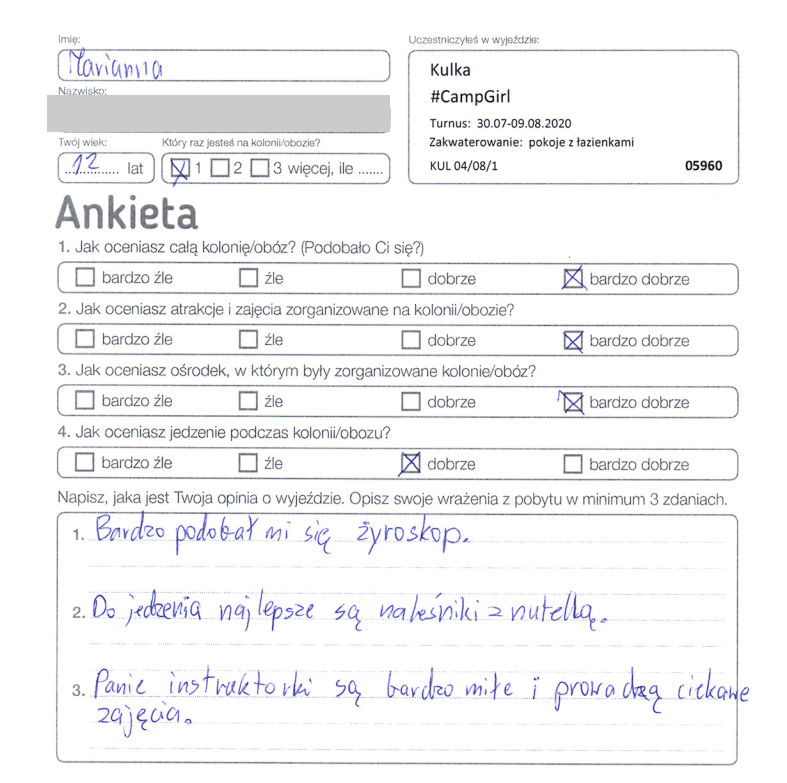 Imię:
Marianna
Nazwisko:
Twój wiek:
12 lat
Który raz jesteś na kolonii/obozie?
1 2 3 więcej, ile .......
Uczestniczyłeś w wyjeździe:
Kulka
#CampGirl
Turnus: 30.07-09.08.2020
Zakwaterowanie: pokoje z łazienkami
KUL 04/08/1 05960
Ankieta
1. Jak oceniasz całą kolonię/obóz? (Podobało Ci się?)
bardzo źle źle dobrze bardzo dobrze
2. Jak oceniasz atrakcje i zajęcia zorganizowane na kolonii/obozie?
bardzo źle źle dobrze bardzo dobrze
3. Jak oceniasz ośrodek, w którym były zorganizowane kolonie/obóz?
bardzo źle źle dobrze bardzo dobrze
4. Jak oceniasz jedzenie podczas kolonii/obozu?
bardzo źle źle dobrze bardzo dobrze
Napisz, jaka jest Twoja opinia o wyjeździe. Opisz swoje wrażenia z pobytu w minimum 3 zdaniach.
1. Bardzo podobał mi się żyroskop.
2. Do jedzenia najlepsze są naleśniki z nutellą.
3. Panie instruktorki są bardzo miłe i prowadzą ciekawe
zajęcia.